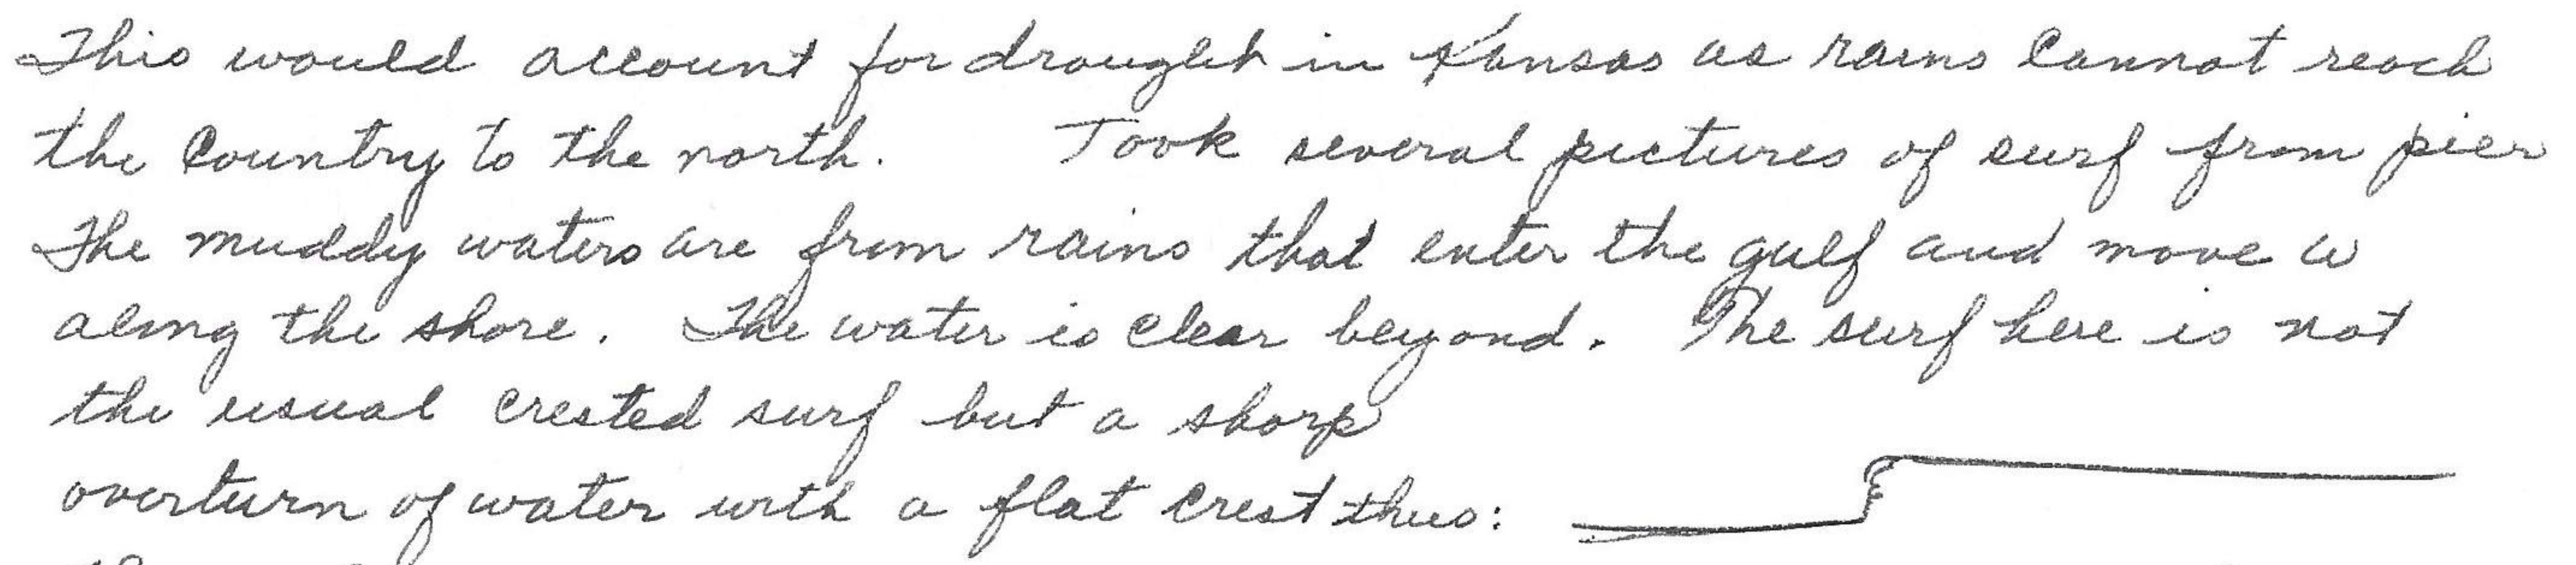 This would account for drought in Kansas as rains cannot reach
the country to the north. Took several pictures of surf from pier
The muddy waters are from rains that enter the gulf and move W
along the shore. The water is clear beyond. The surf here is not
the usual crested surf but a sharp
overturn of water with a flat crest thus: